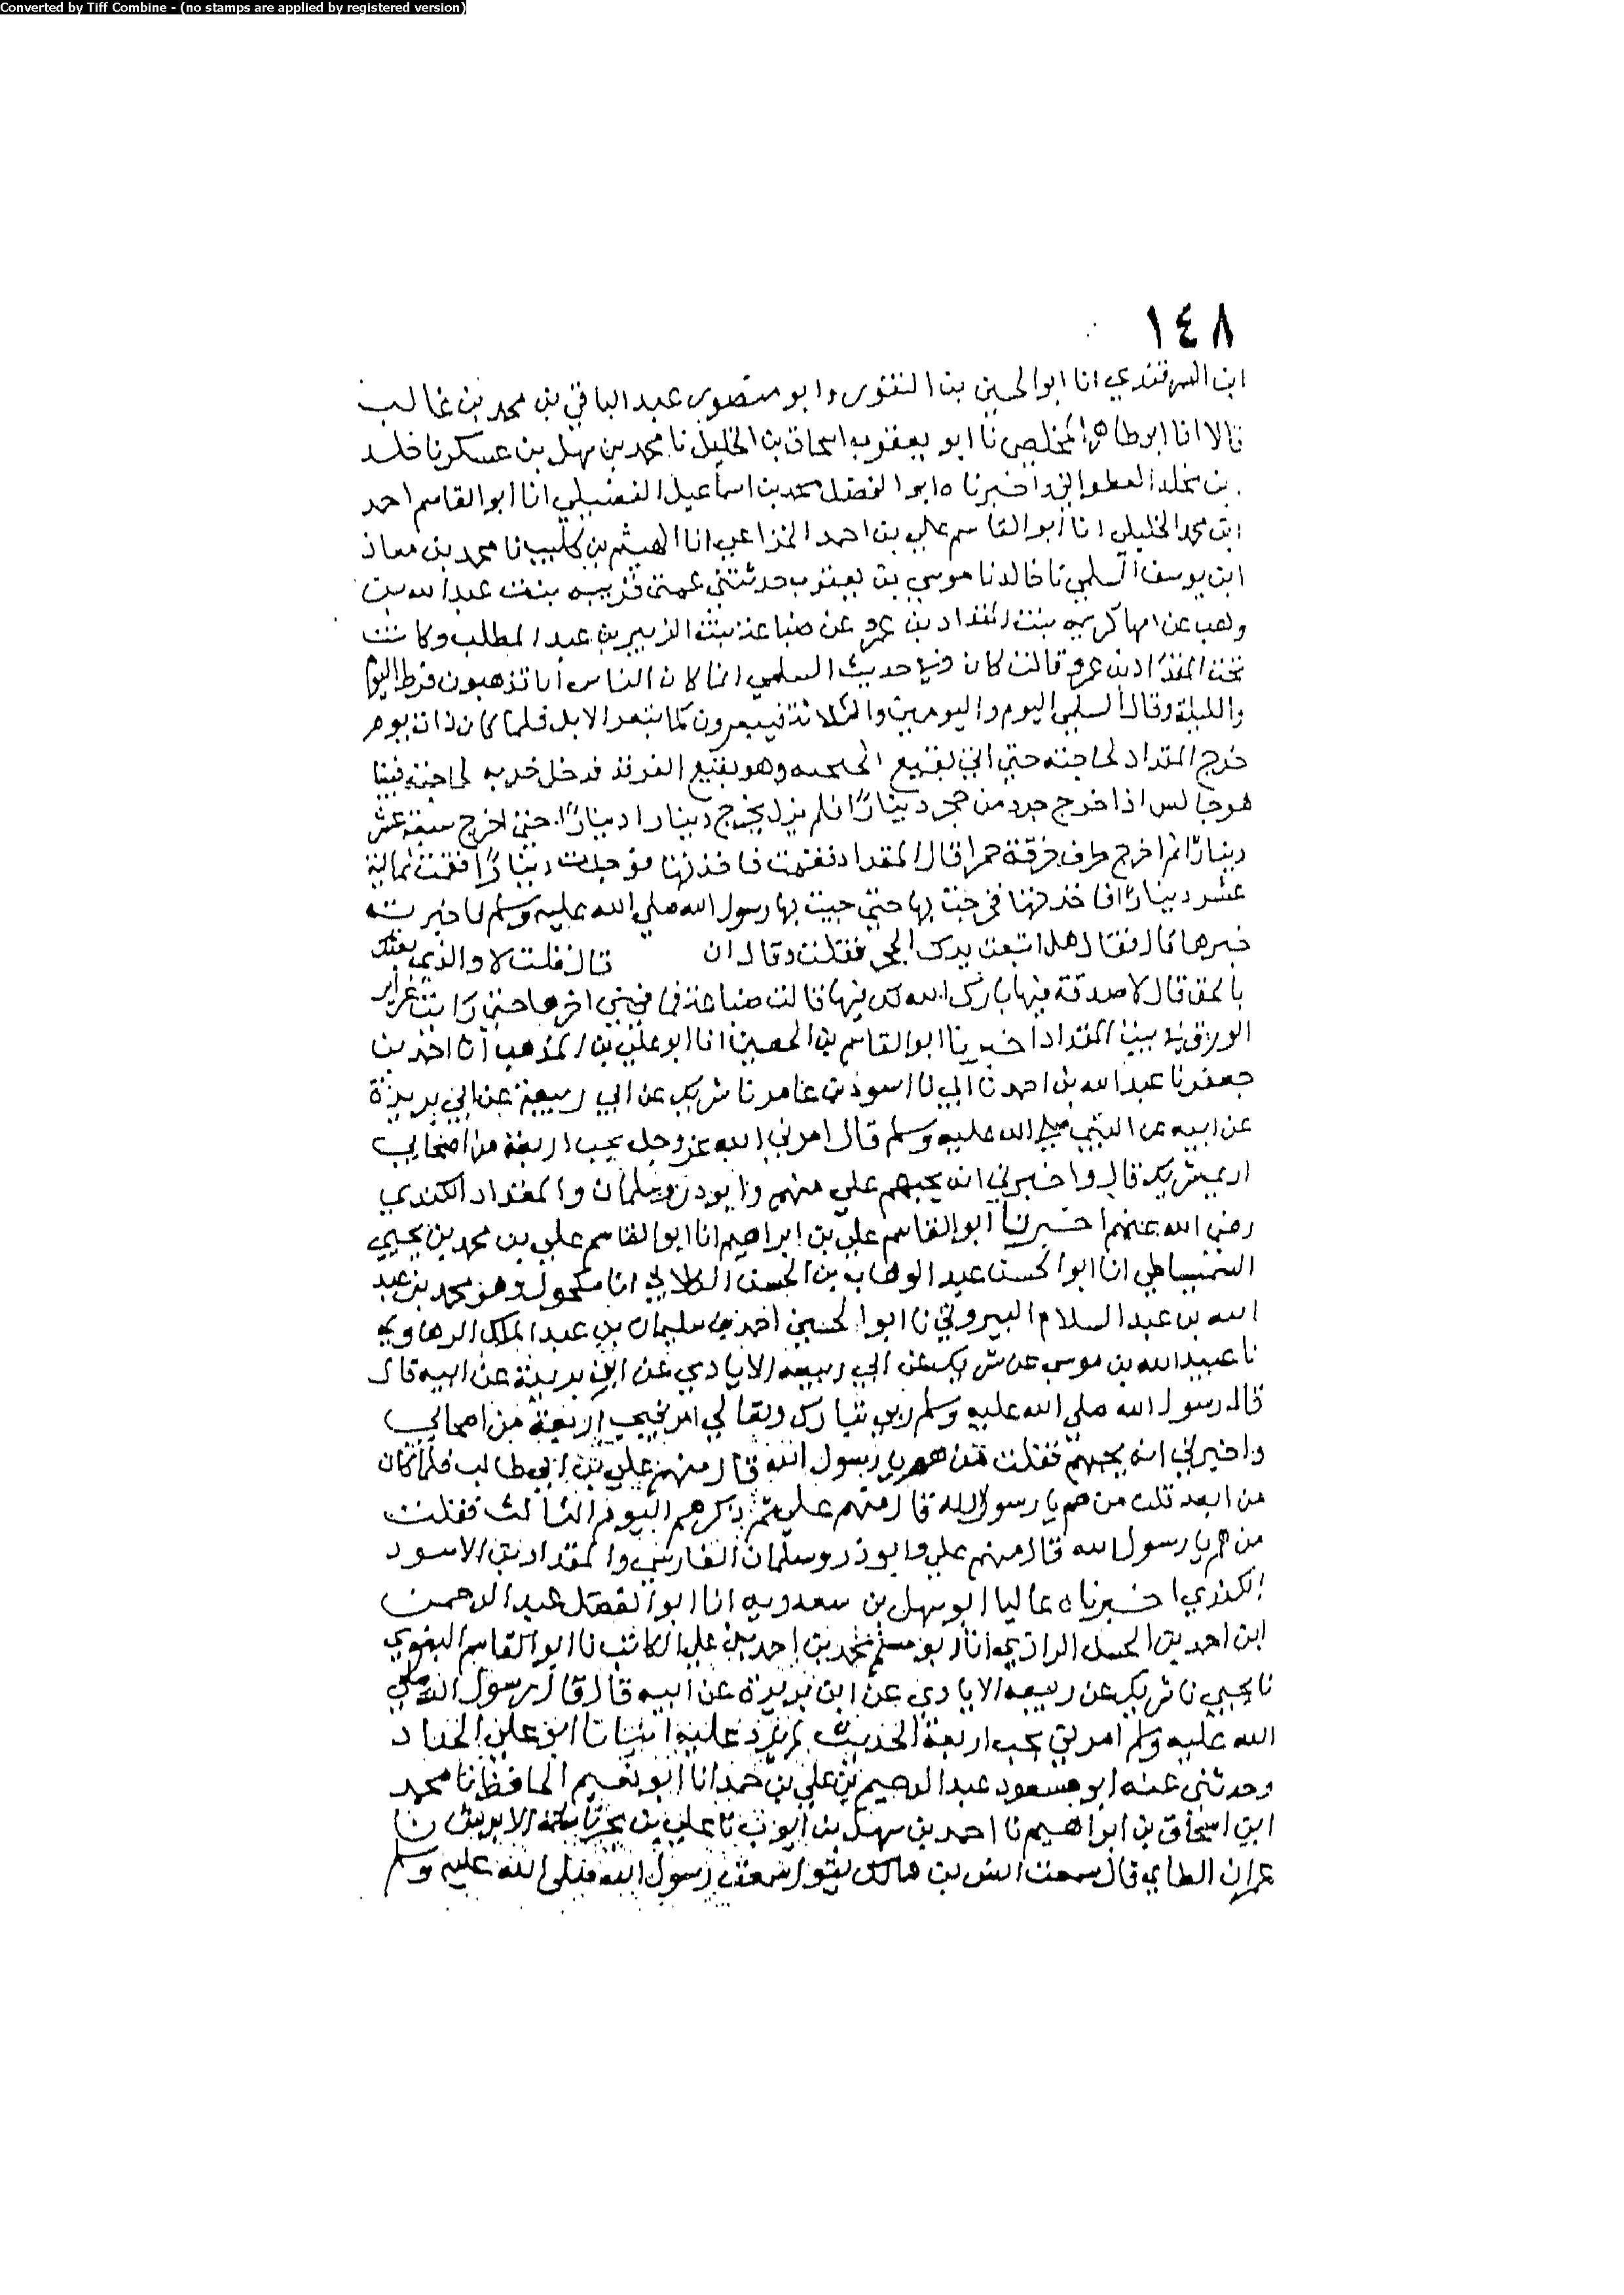 Converted by Tiff Combine - (no stamps are applied by registered version)
١٤٨
ابن السمرقندي انا ابو الحسين بن النقور وابو منصور عبد الباقي بن محمد بن غالب
قالا انا ابو طاهر المخلص نا ابو يعقوب اسحاق بن الخليل نا محمد بن سهل بن عسكر نا خلد
بن مخلد القطواني واخبرناه ابو الفضل محمد بن اسماعيل الفضيلي انا ابو القاسم احمد
ابن محمد الخليلي انا ابو القاسم علي بن احمد الخزاعي انا الهيثم بن كليب نا محمد بن معاذ
ابن يوسف السلمي نا خالد نا موسي بن يعقوب حدثتني عمتي قريبه بنت عبد الله بن
وهب عن امها كريمه بنت المقداد بن عمرو عن ضباعة بنت الزبير بن عبد المطلب وكانت
تحت المقداد بن عمرو قالت كان وفي حديث السلمي انما لان الناس انما تذهبون فرط اليوم
والليلة وقال السلمي اليوم واليومين والثلاثة فيبعرون كما تبعر الابل فلما كان ذات يوم
خرج المقداد لحاجته حتي اتي بقيع وهو بقيع الغرقد فدخل خربه لحاجته فبينا
هو جالس اذا خرج جرد من جحر دينارًا فلم يزل يخرج دينارا دينارًا حتي اخرج سبعة عشر
دينارًا ثم اخرج طرف خرقة حمرا قال المقداد فقمت فاخذتها فوجدت دينارًا فتمت ثمانية
عشر دينارًا فاخذتها فخرجت بها حتي جيت بها رسول الله صلي الله عليه وسلم فاخبرته
خبرها قال فقال هل اتبعت يدك الجحر فقلت وقال ان قال فقلت لا والذي بعثك
بالحق قال لا صدقة فيها بارك الله لك فيها قالت ضباعة فما فني اخرها حتي رايت غراير
الورق في بيت المقداد اخبرنا ابو القاسم بن الحصين انا ابو علي بن المذهب انا احمد بن
جعفر نا عبد الله بن احمد نا ابي نا اسود بن عامر نا شريك عن ابي ربيعة عن ابي بريدة
عن ابيه عن النبي صلي الله عليه وسلم قال امرني الله عز وجل بحب اربعة من اصحابي
اري شريك قال واخبرني انه يحبهم علي منهم وابو ذر وسلمان والمقداد الكندي
رضي الله عنهم اخبرنا ابو القاسم علي بن ابراهيم انا ابو القاسم علي بن محمد بن يحيي
السميساطي انا ابو الحسن عبد الوهاب بن الحسن الكلابي انا مكحول وهو محمد بن عبد
الله بن عبد السلام البيروتي نا ابو الحسين احمد بن سليمان بن عبد الملك الرهاوي
نا عبيد الله بن موسي عن شريك عن ابي ربيعه الايادي عن ابن بريدة عن ابيه قال
قال رسول الله صلي الله عليه وسلم ربي تبارك وتعالي امرني بحب اربعة من اصحابي
واخبرني انه يحبهم فقلت من هم يا رسول الله قال منهم علي بن ابي طالب فلما كان
من ابعد قلت من هم يا رسول الله قال منهم علي ثم ذكرهم اليوم الثالث فقلت
من هم يا رسول الله قال منهم علي وابو ذر وسلمان الفارسي والمقداد بن الاسود
الكندي اخبرناه عاليا ابو سهل بن سعدويه انا ابو الفضل عبد الرحمن
ابن احمد بن الحسن الرازي انا ابو مسلم محمد بن احمد بن علي الكاتب نا ابو القاسم البغوي
نا يحيي نا شريك عن ربيعه الايادي عن ابن بريدة عن ابيه قال قال رسول الله صلي
الله عليه وسلم امرني بحب اربعة الحديث لم يزد عليه انبانا ابو علي الحداد
وحدثني عنه ابو مسعود عبد الرحيم بن علي بن حمد انا ابو نعيم الحافظ نا محمد
ابن اسحاق بن ابراهيم نا احمد بن سهل بن ايوب نا علي بن بحر نا سلمة الابرش نا
عمران الطاي قال سمعت انس بن مالك يقول سمعت رسول الله صلى الله عليه وسلم